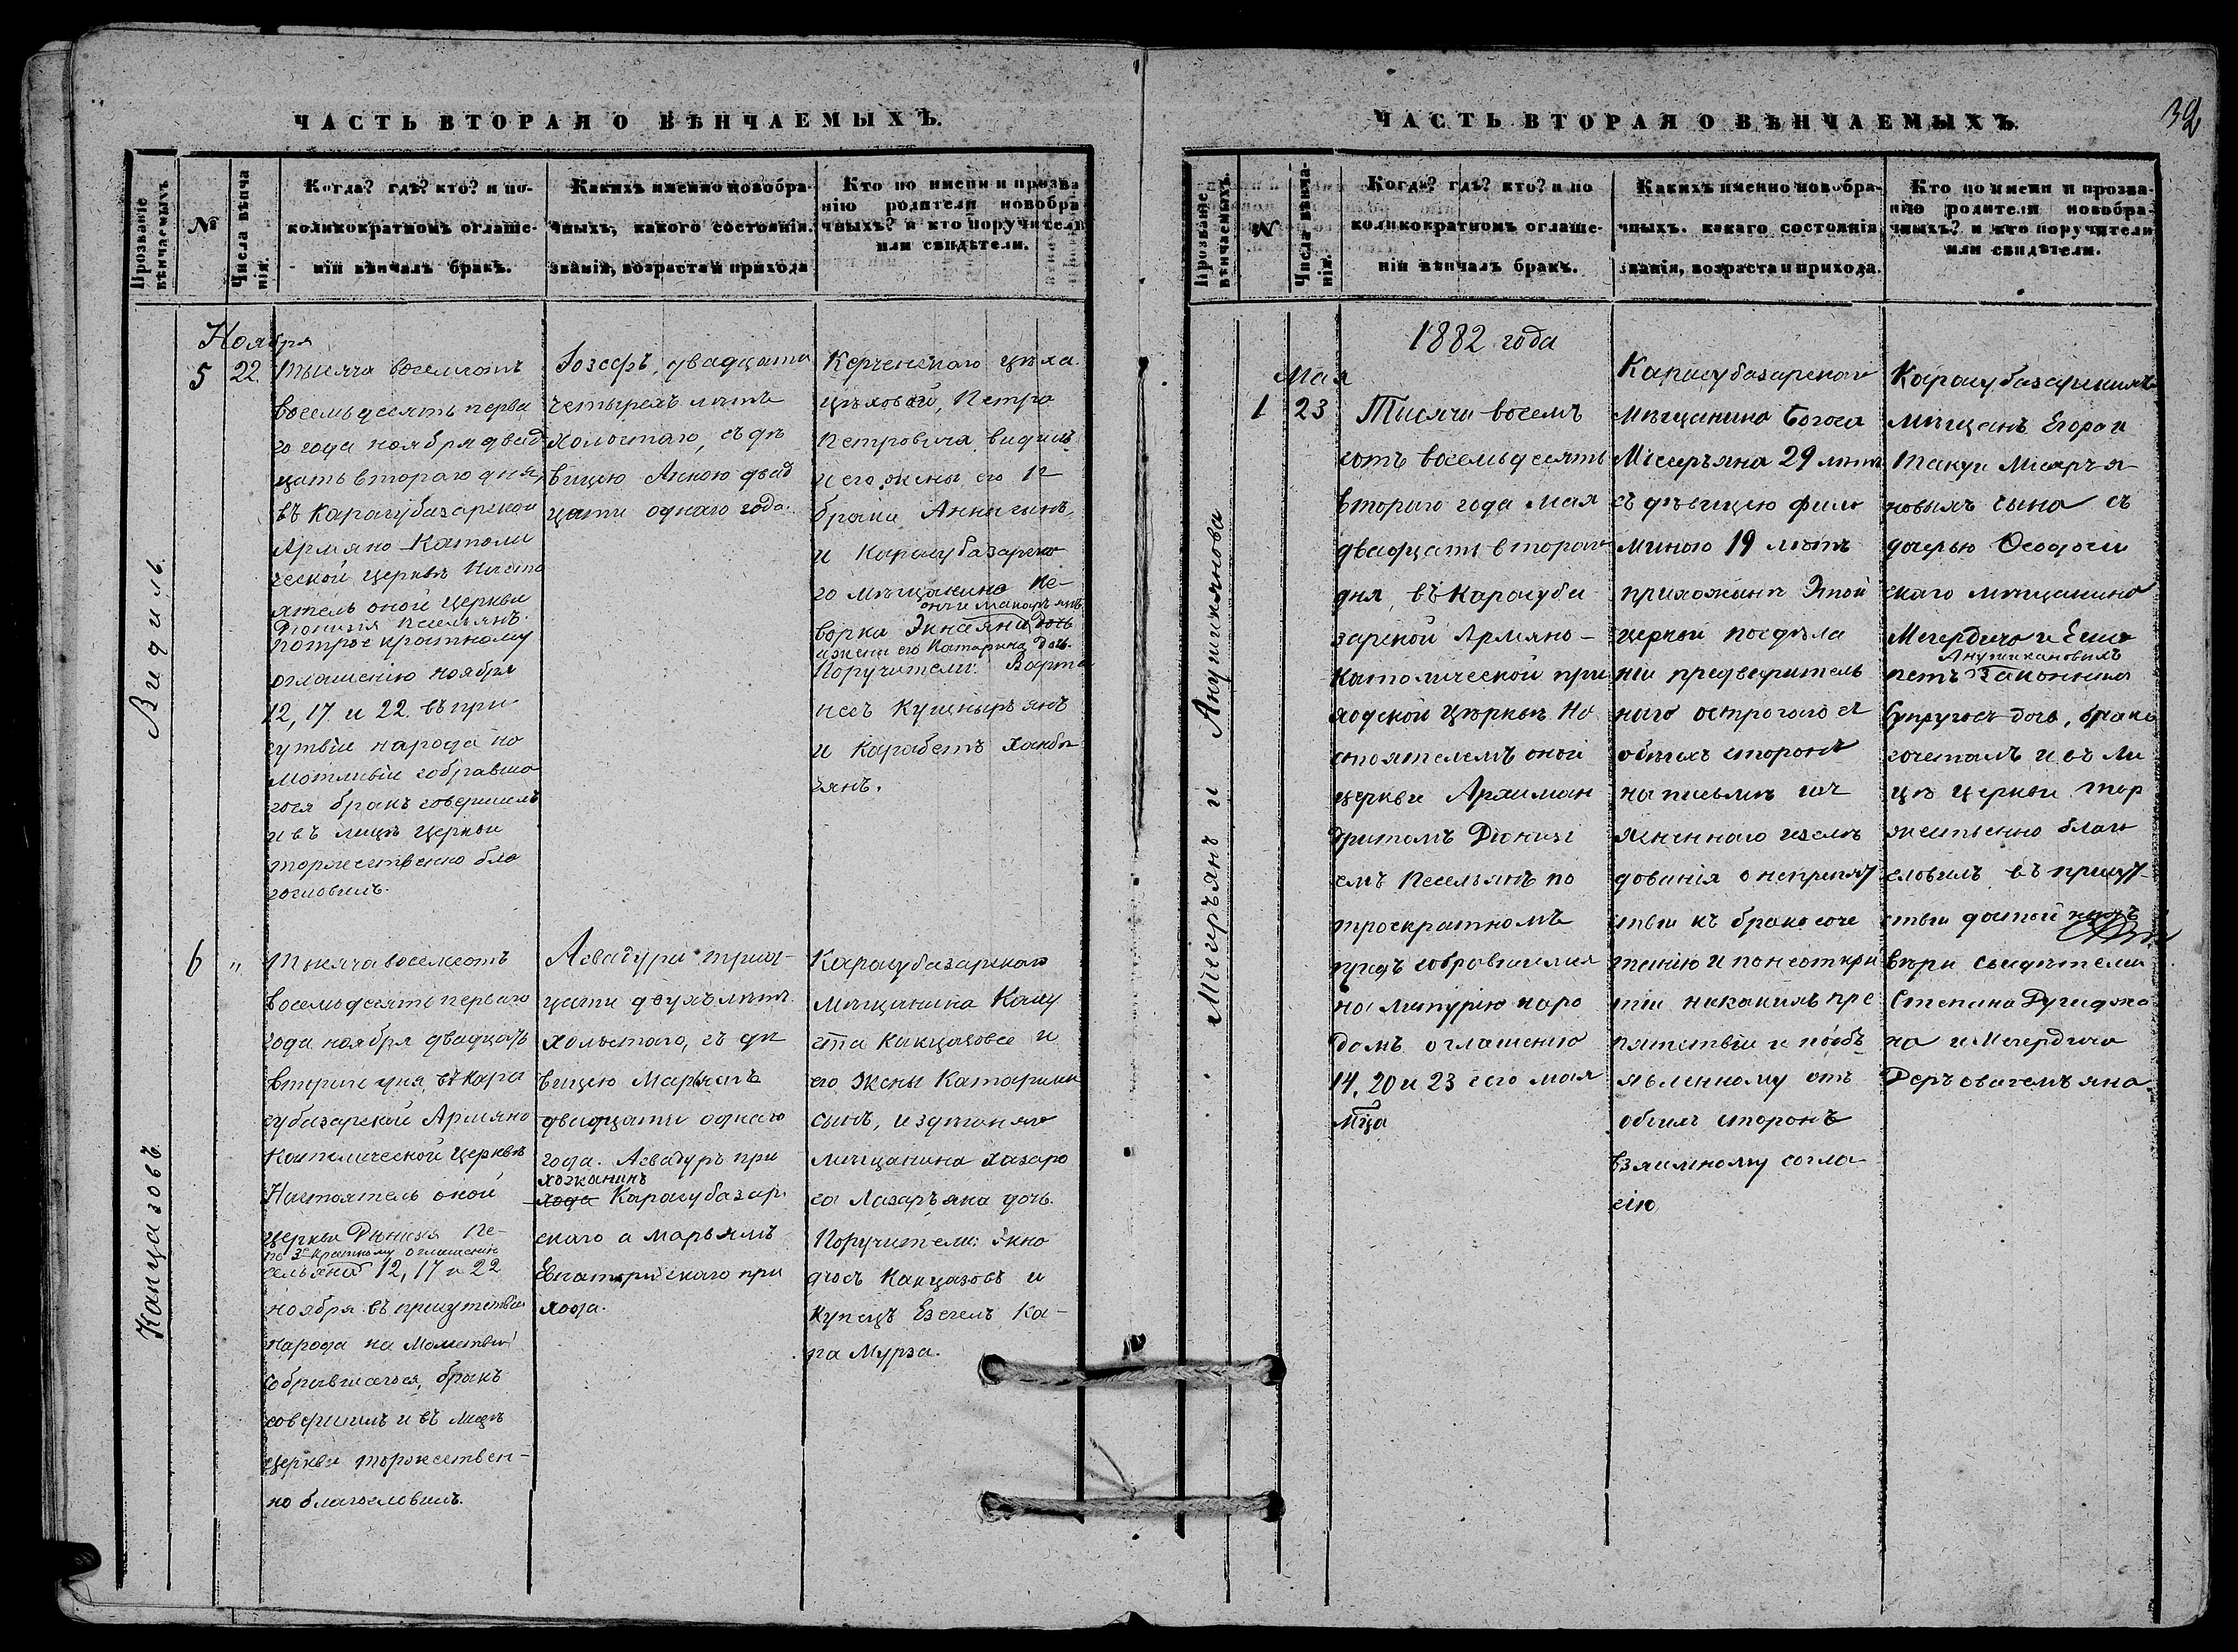 ЧАСТЬ ВТОРАЯ О ВѢНЧАЕМЫХЪ.
Прозваніе вѣнчаемыхъ
№
Числа вѣнча
нія.
Когда? гдѣ? кто? и по-
коликократномъ оглаше-
ніи вѣнчалъ бракъ.
Какихъ именно новобра-
чныхъ, какого состоянія.
званія, возраста и прихода
Кто по имени и прозва
нію родители новобра
чныхъ? и кто поручители
или свидѣтели.
Видиль.
Ноября
5
22.
Тысяча восемьсотъ
восемьдесять перва
го года ноября двад
цать втораго дня,
въ Карасубазарской
Армяно Католи
ческой церквѣ Насто
ятель оной церкви
Діонизія Песельянъ.
по трое кратному
оглашенію ноября
12, 17 и 22. въ при
сутвіи народа на
молитвіи собравша
гося бракъ совершилъ
и въ лицѣ церкви
торжественно бла
гословилъ.
Іозефъ, двадцати
четырехъ лѣтъ
холостаго, съ дѣ
вицею Анною двад
цати однаго года.
Керченскаго цѣха
цѣховой, Петра
Петровича Видиль
и его жены его 1го
браки Анны сынъ,
и Карасубазарско
го мѣщанина Ке-
ворка
Поручители: Варта
несъ Кушнырьянъ
и Карабетъ Ханби
гянъ.
Канцазовъ.
6
"
Тысяча восемсотъ
восемьдесять перваго
года ноября двадцать
втораго дня, въ Кара
субазарской Армяно
Католической церквѣ
Настоятель оной
церкви Діонизія Пе-
по 3е кратному оглашенію
сельяна 12, 17 и 22
ноября въ присутствіи
народа на Молитвіи
собравшагося, бракъ
совершилъ и въ лицѣ
церкви торжествен-
но благословилъ.
Асвадури трид-
цати двухъ лѣтъ
холостаго, съ дѣ
вицею Марьямъ
двадцати однаго
года. Асвадуръ при
хожанинъ
хода Карасубазар
скаго а Марьямъ
Евпаторійскаго при
хода.
Карасубазарскаго
мѣщанина Калу
ста Канцазова и
его жены Катарины
сынъ, и
мѣщанина Хазаро
са Лазарьяна дочь.
Поручители:
Канцазовъ и
купецъ Езегелъ Ка-
па Мурза.
ЧАСТЬ ВТОРАЯ О ВѢНЧАЕМЫХЪ.
32
Прозваніе вѣнчаемыхъ.
№
Числа вѣнча-
нія.
Когда? гдѣ? кто? и по
коликократномъ оглаше-
ніи вѣнчалъ бракъ.
Какихъ именно новобра-
чныхъ. какаго состоянія
званія, возраста и прихода.
Кто по имени и прозва-
нію родители новобра-
чныхъ? и кто поручители
или свидѣтели.
Мисирьянъ и Анушкянова
1882 года
Мая
1
23
Тысяча восемъ
сотъ восемьдесять
втораго года мая
двадцати втораго
дня, въ Карасуба
зарской Армяно-
Католической при
ходской церквѣ На
стоятелемъ оной
церкви Архиман
дритомъ Діонизі
емъ Песельянъ по
троекратномъ
предъ собравшимся
на Литургію наро
домъ оглашенію
14, 20 и 23 сего мая
мца
Карасубазарскаго
мѣщанина Богоса
Мисирьяна 29 лѣтъ
съ дѣвицею Фило
миною 19 лѣтъ
прихожанъ Этой
церкви
ніи предваритель
наго остророго съ
обѣихъ сторонъ
на письмѣ
дованія о
ствіи къ бракосоче
танію и по неоткры
тіи никакихъ пре
пятствіи и по объ
явленному отъ
обѣихъ сторонъ
взаимному согла-
сію,
Карасубазарскихъ
мѣщанъ Егора и
Такуи Мисирья-
новыхъ сына съ
дочерью Ѳеодосій
скаго мѣщанина
Мегердича и
Анушкановыхъ
Законныхъ
супруговъ дочь, брака
сочеталъ и въ ли
цѣ церкви тор
жественно благо
словилъ въ присут
ствіи достойныхъ
вѣры свидѣтелей
Степана
на и Мегердича